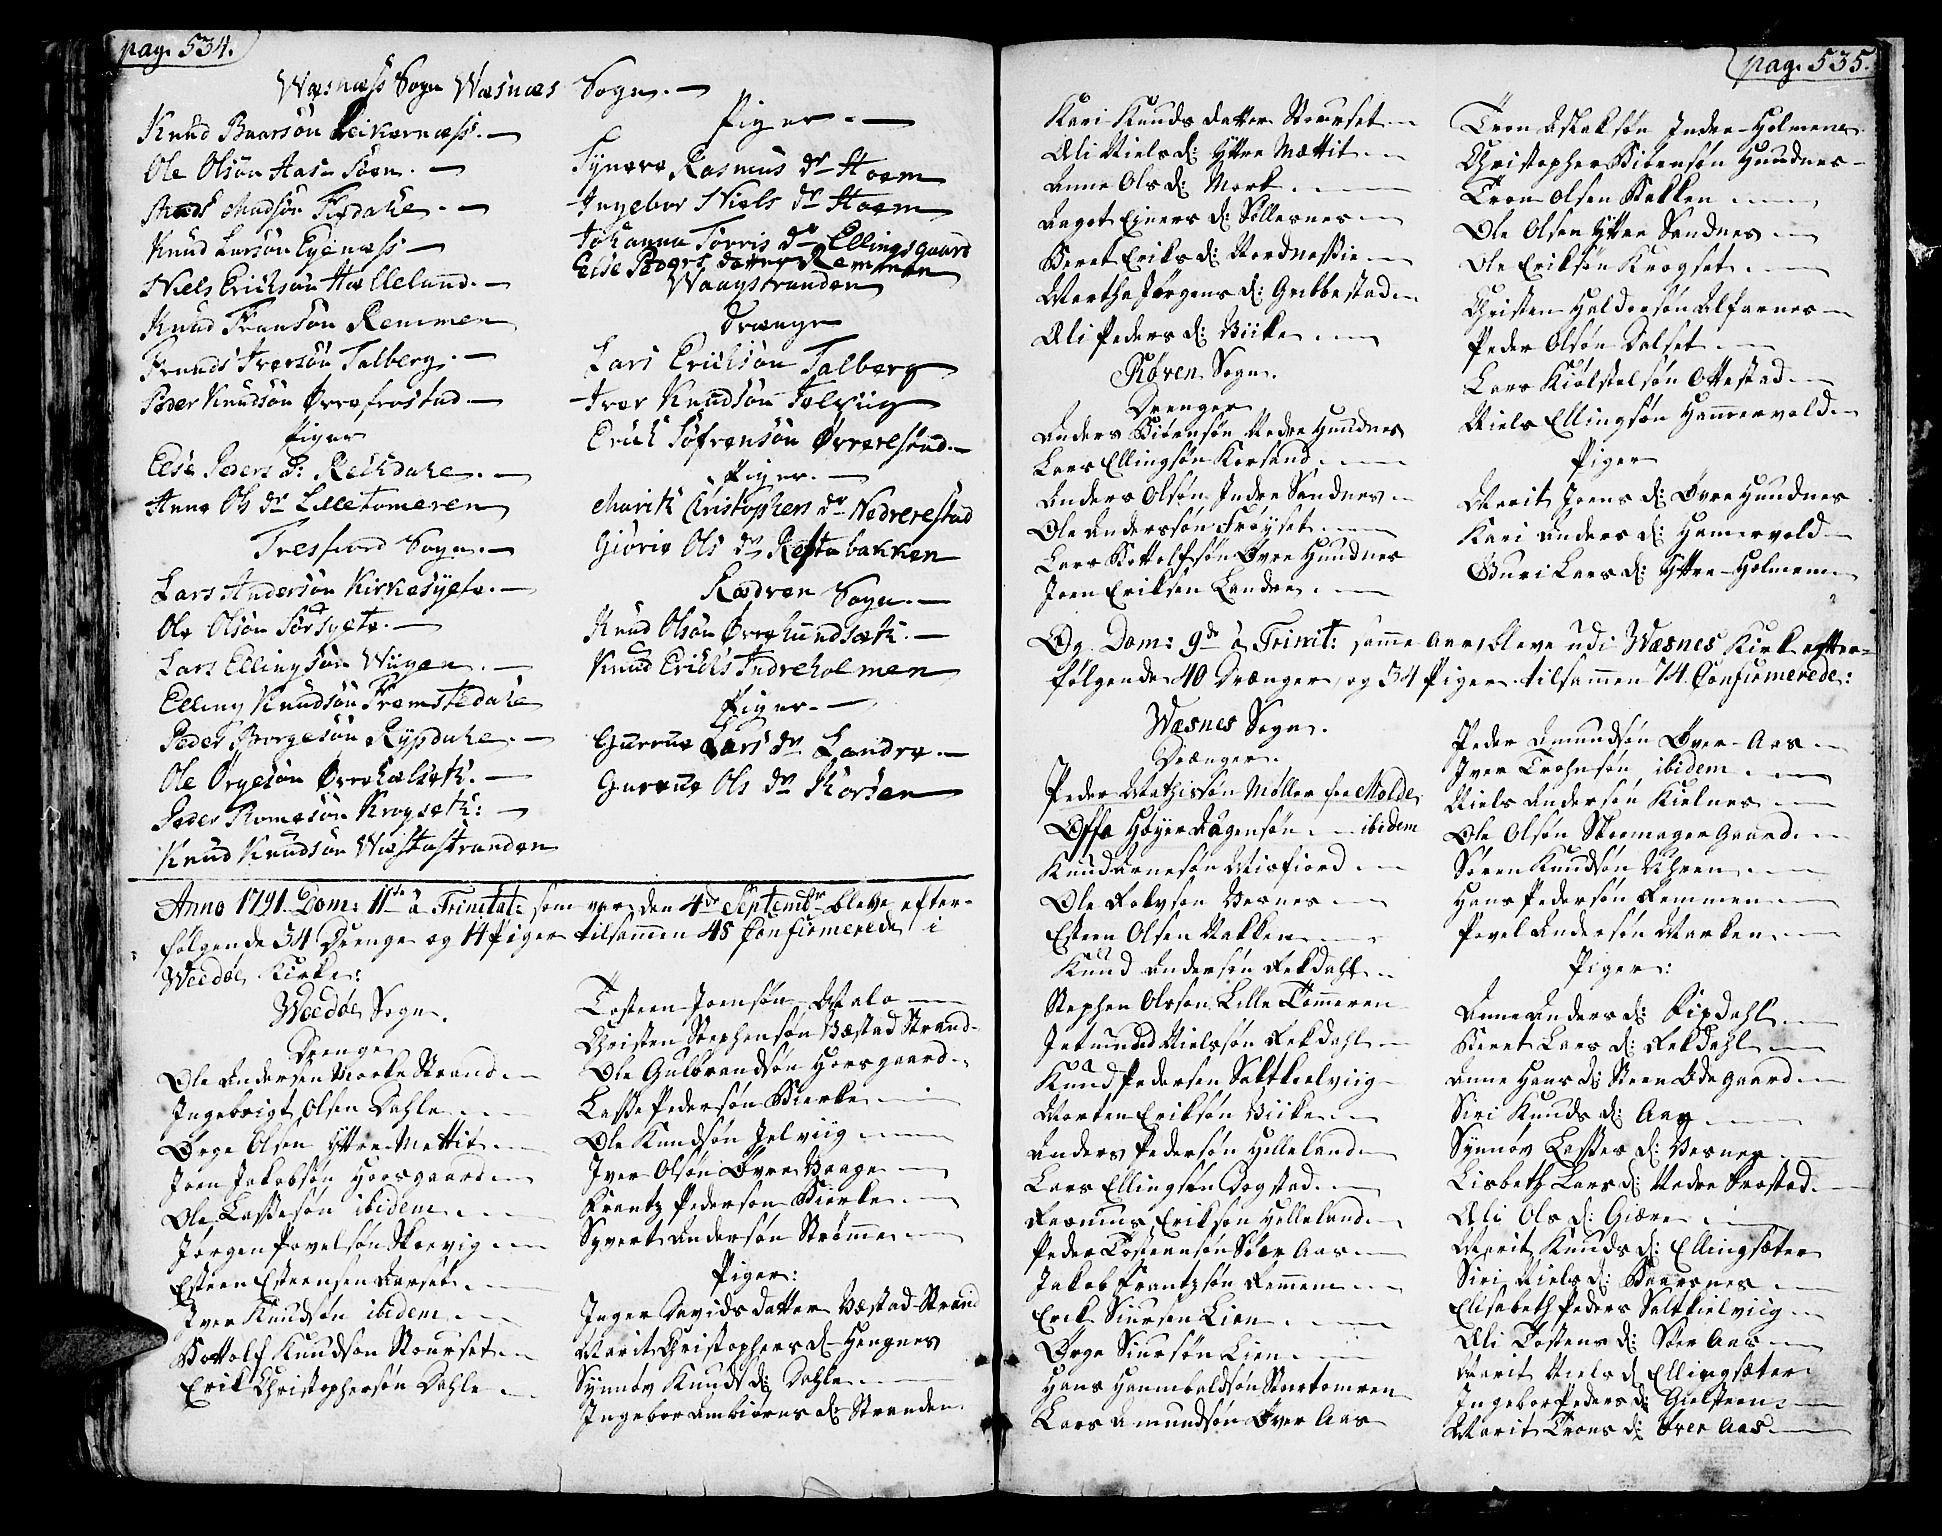 pag. 534.
Wæsnæss Sogn Wæsnæs Sogn.
Knud Baarsön Leikarnæss.
Ole Olsön Aas
Knud Larsön Egenæss
Niels Ericksön Hælleland.
Knud Fransön Remmen
Trunds Iversön Talberg.
Peder Knudsön Örrefrostad
Piger
Else Peders D: Reikdahe.
Anne Ols dr Lilletomeren
Tresfiord Sogn.
Lars Andersön Kirkesyete.
Ole Olsön Sörsyete.
Lars Ellingsön Wiigen.
Elling Knudsön Fremstedahe
Peder Borgesön Rypdahe.
Ole Örgesön Örrehælsæth.
Peder Romesön Krogsæth:
Knud Knudsön Wæstestranden
Piger.
Synneve Rasmus dr Hoem
Ingebor Niels dr Hoem
Johanna Torris dr Ellingsgaard
Else Baars datter Remmen
Waagstranden
Drænge
Lars Ericksön Talberg
Iver Knudsön Telviig
Erick Söfrensön Örrerestad.
Piger.
Marith Christophers dr Nedrerestad
Giörie Ols dr Restebakken
Rødven Sogn.
Knud Olsön Örrehundsæth.
Knud Erichs Indreholmen
Piger.
Gurrue Lars dr Landre.
Gurrue Ols dr Korsen
Anno 1791. Dom: 11te à Trinitate som var den 4de Septembr bleve efter-
følgende 34 Drenge og 14 Piger tilsamen 48 Confirmerede i
Weedøe Kirke:
Weedøe Sogn.
Drenge
Ole Andersen Morke Strand.
Ingebrigt Olsen Dahle
Ørge Olsen Yttre Mettit
Joen Jakobsøn Horsgaard
Ole Lassesøn ibidem
Jørgen Povelsøn Skorvig
Esteen Esteensen Aarset.
Iver Knudsøn ibidem
Bottolf Knudsøn Stourset
Erik Christophersøn Dahle
Tosteen Joensøn Malo
Christen Stephensøn Væstad Strand
Ole Gulbrandsøn Horsgaard
Lasse Pedersøn Bierke
Ole Knudsøn Jelviig
Iver Olsøn Øvre Vaage
Frantz Pedersøn Bierke
Syvert Andersøn Strømme
Piger:
Inger Davids Datter Væstad Strand
Marit Christophers d: Hengnes
Synnøv Knuds d: Dahle
Ingebor Ambiørns d: Stranden
pag. 535.
Kari Knuds datter Stourset
Ali Niels d: Yttre Mættit
Anne Ols d: Mork
Aagot Einers d: Søllesnes
Beret Eriks d: Nordnessie
Martha Jørgens d: Gribbestad
Ali Peders d: Viike
Røven Sogn.
Drenger
Anders Biørnsøn Nedre Hundnes
Lars Ellingsøn Korsand
Anders Olsøn Indre Sandnes
Ole Anderssøn Frøyset
Lars Bottolfsøn Øvre Hundnes
Joen Eriksen Landre
Tron Aslaksøn Indre-Holmene
Christopher Biørnsøn Hundnes
Tron Olsen Bakken
Ole Olsen Yttre Sandnes
Ole Eriksøn Krogset
Christen Haldorsøn Alfarnes
Peder Olsøn Dalset
Lars Kiølstelsøn Ottestad
Niels Ellingsøn Hamervold
Piger
Marit Joens d: Øvre Hundnes
Kari Anders d: Hamervold
Guri Lars d: Yttre-Holmem
Og Dom: 9de à Trinit: samme Aar, bleve udi Wæsnes Kirke efter-
følgende 40 Drænger, og 34 Piger tilsamen 74 Confirmerede:
Wæsnes Sogn.
Drænger.
Peder Mathissøn Møller fra Molde
Offe Høyer Aagensøn ibidem
Knud Arnesøn Misfiord
Ole Rolvson Vesnes
Esteen Olsen Bakken
Knud Andersøn Rekdahl
Stephen Olsson Lille Tomeren
Jetmund Nielssøn Rekdahl
Knud Pedersen Saltkielviig
Morten Eriksøn Viike
Anders Pedersøn Helleland
Lars Ellingsøn Dogstad
Rasmus Erikson Helleland
Peder Tosteensøn Søer Aas
Jakob Frantzsøn Remem
Erik Siursen Lien
Ørge Siursøn Lien
Hans Hanibaldsøn Stortomren
Lars Amundsøn Over Aas
Peder Amundsøn Over-Aas
Iver Trohnsøn ibidem
Niels Andersøn Kielnes
Ole Olsøn Skomager Gaard
Søren Knudsøn Uhren
Hans Pedersøn Remmen
Povel Andersøn Marken
Piger:
Anne Anders d: Ripdahl
Beret Lars d: Rekdahl
Anne Hans d: Steen Ødegaard
Siri Knuds d: Aas
Synnøv Lasses d: Vesnes
Lisbeth Lars d: Nedre Frostad
Ali Ols d: Giære
Marit Knuds d: Ellingsæter
Siri Niels d: Baarsnes
Elisabeth Peders Saltkielviig
Ali Tostens d: Søer Aas
Marit Niels d Ellingsæter
Ingebor Peders d: Gielsteen
Marit Trons d: Over Aas